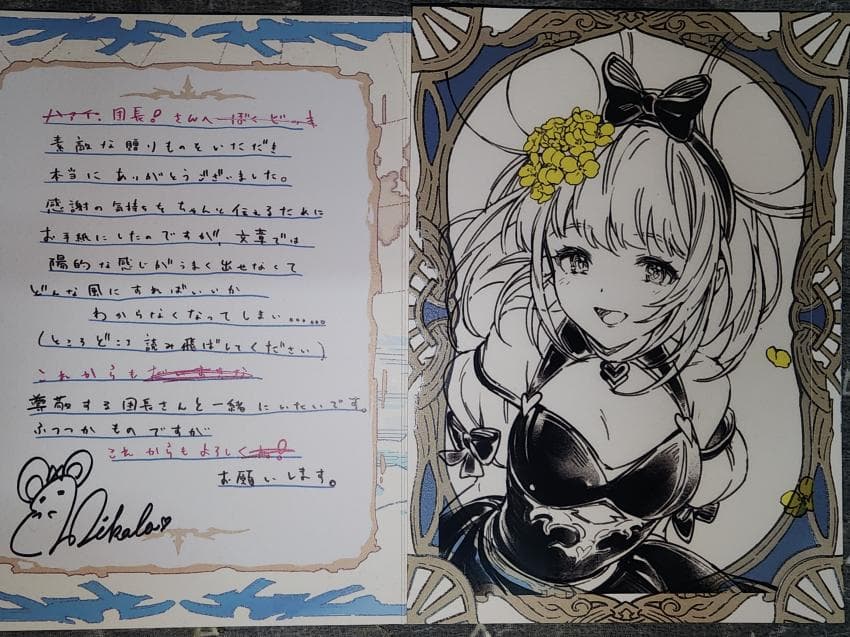 ハァイ、団長♂さんへ ぼくどっき
素敵な贈りものをいただき
本当にありがとうございました。
感謝の気持ちをちゃんと伝えるために
お手紙にしたのですが、文章では
陽的な感じがうまく出せなくて
どんな風にすればいいか
わからなくなってしまい……
(ところどころ読み飛ばしてください)
これからも
尊敬する団長さんと一緒にいたいです。
ふつつかものですが
これからもよろしく
お願いします。
Vikala